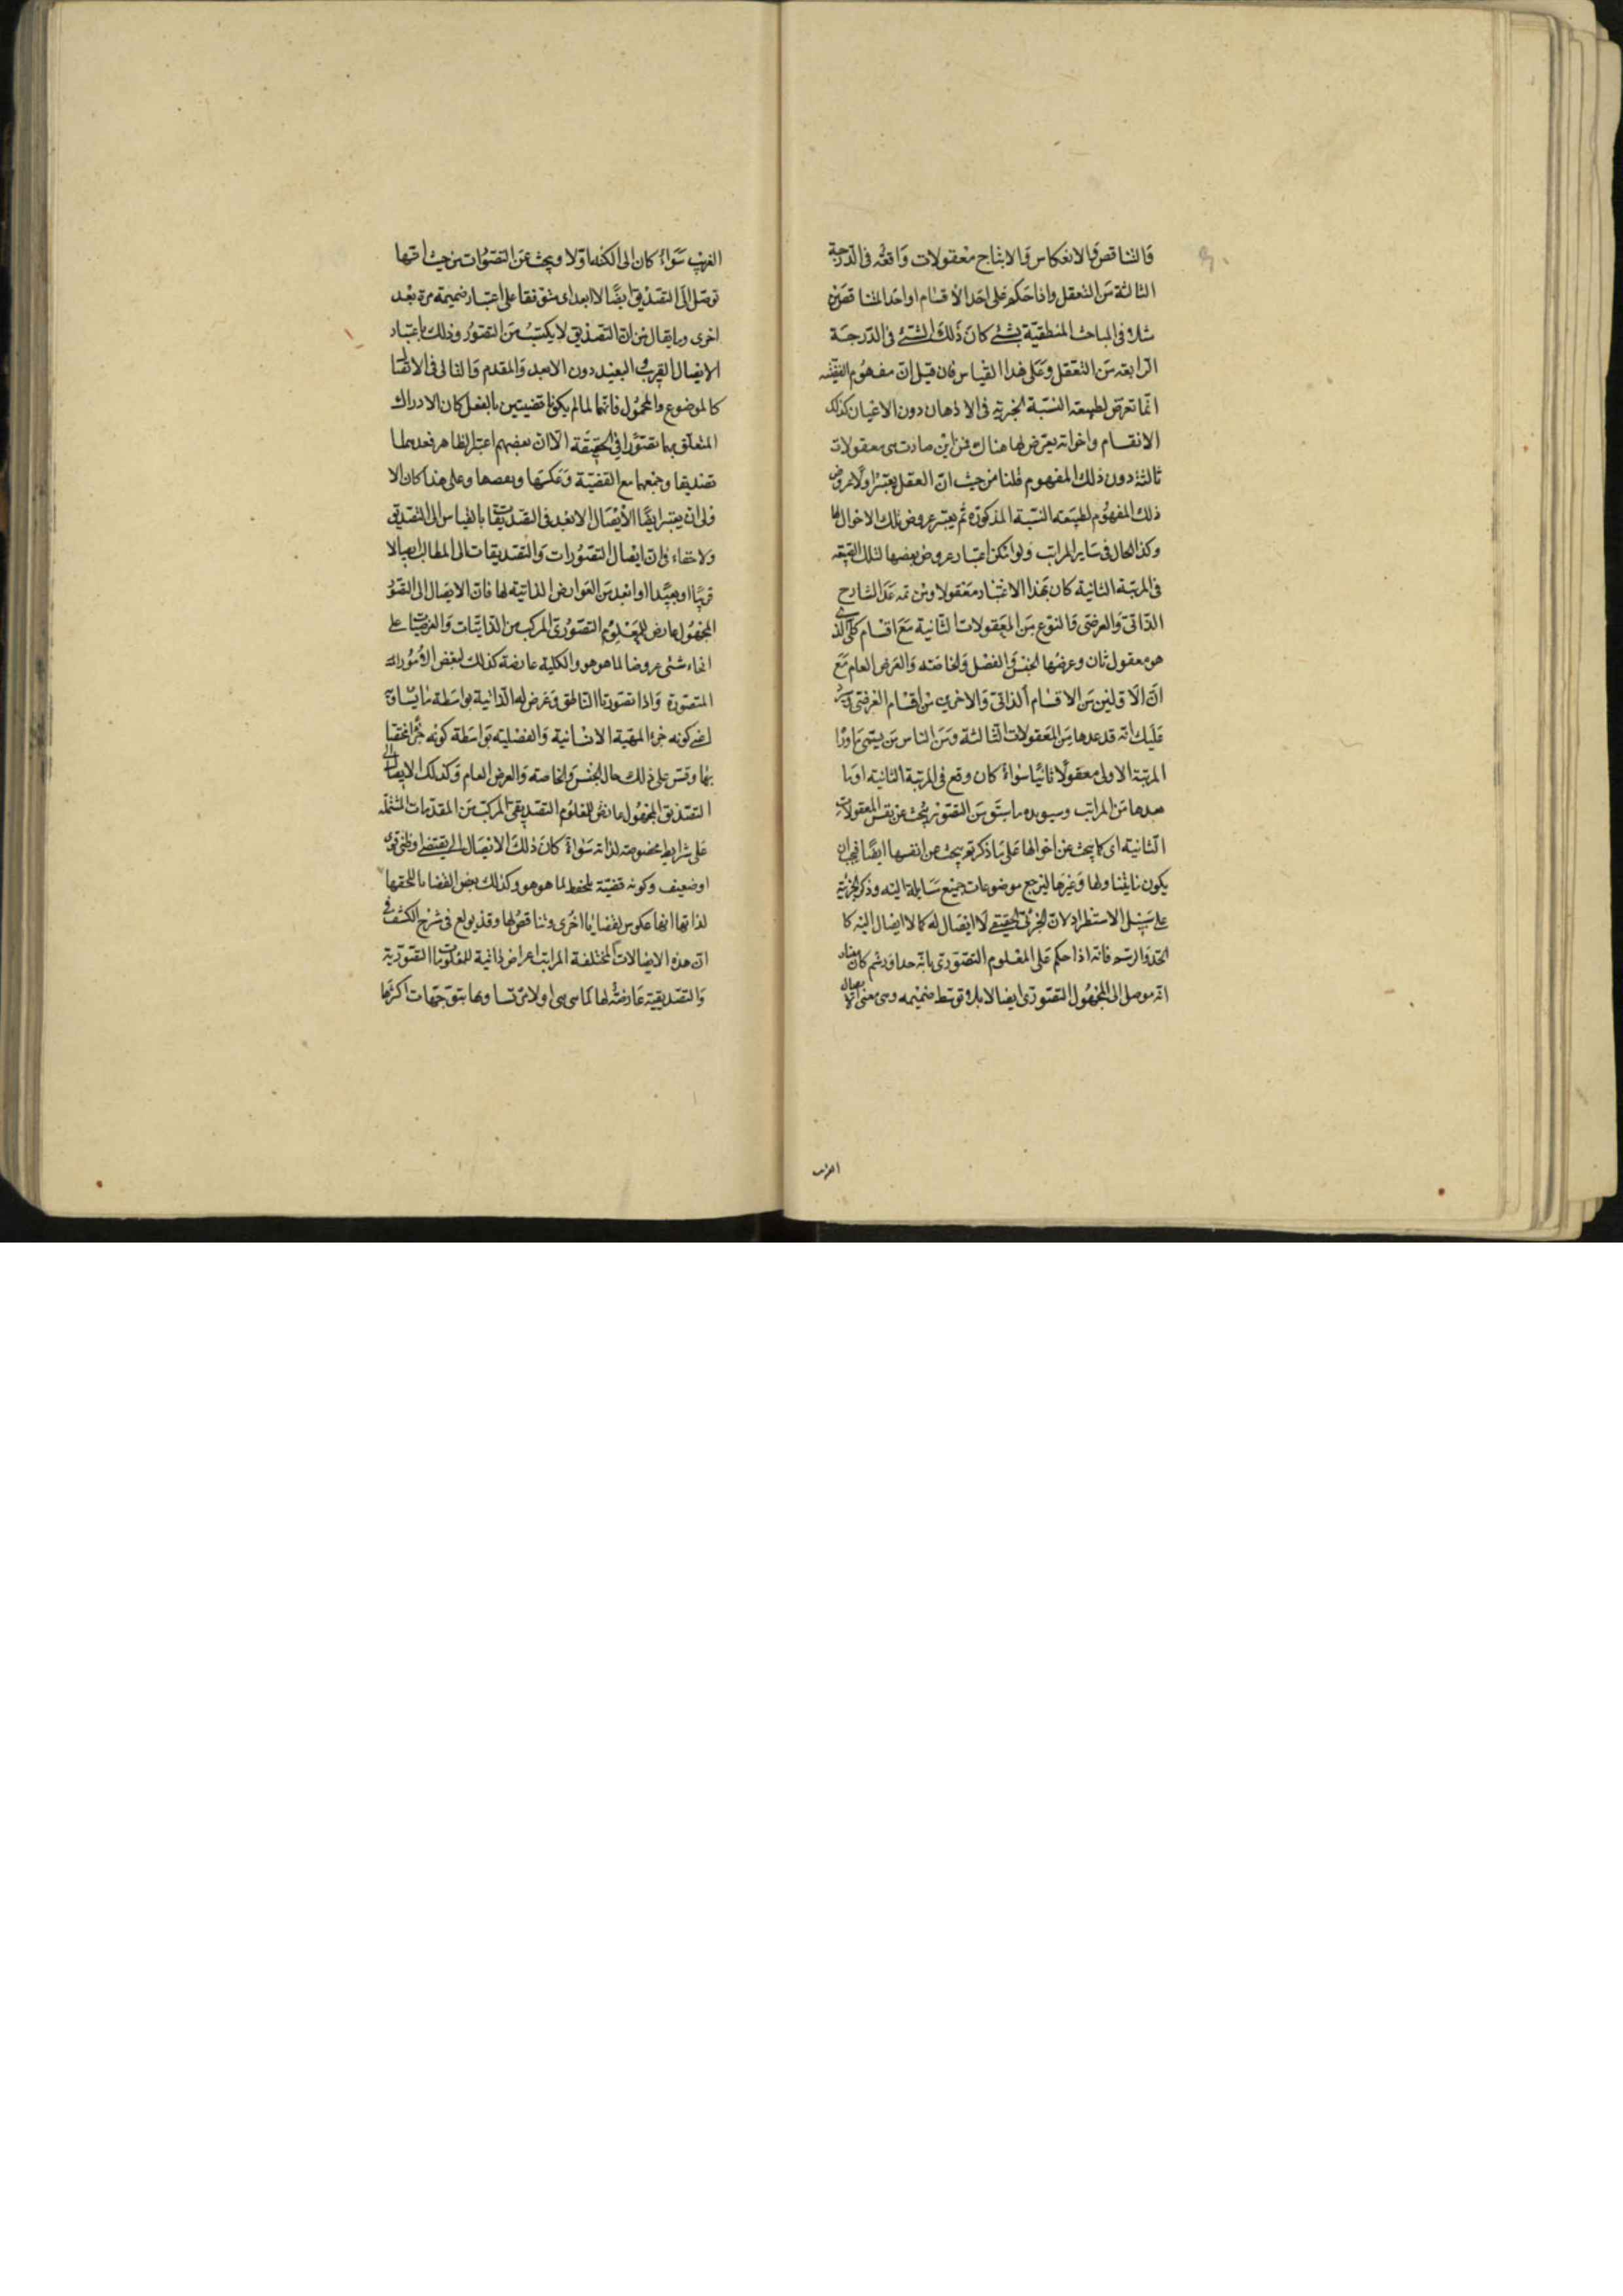 والتناقض والانعكاس والانتاج معقولات واقعة فى الدرجة
الثالثة من التعقل واذا حكم على احد الاقسام او احد المتناقضين
مثلا فى المباحث المنطقية بشئ كان ذلك الشئ فى الدرجة
الرابعة من التعقل وعلى هذا القياس فان قيل ان مفهوم القضية
انما تعرض لطبيعة النسبة الخبرية فى الاذهان دون الاعيان كذلك
الانقسام واخواته يعرض لها هناك فمن اين صارت هى معقولات
ثالثة دون ذلك المفهوم قلنا من حيث ان العقل يعتبر اولا عروض
ذلك المفهوم لطبيعة النسبة المذكورة ثم يعتبر عروض تلك الاحوال لها
وكذا الحال فى ساير المراتب ولو امكن اعتبار عروض بعضها لتلك الطبيعة
فى المرتبة الثانية كان بهذا الاعتبار معقولا ومن ثمه عد الشارح
الذاتى والعرضى والنوع من المعقولات الثانية مع اقسام كلى الذى
هو معقول ثان وعرضها الجنس والفصل والخاصة والعرض العام مع
ان الاولين من الاقسام الذاتى والاخرين من اقسام العرضى
عليك انه قد عدها من المعقولات الثالثة ومن الناس من يسمى ما ورا
المرتبة الاولى معقولا ثانيا سواء كان وقع فى المرتبة الثانية او ما
بعدها من المراتب من التصور يبحث عن نفس المعقولات
الثانية اى كما يبحث عن احوالها على ما ذكرتم يبحث عن انفسها ايضا فيجب ان
يكون ما يتناولها وغيرها ليرجع موضوعات جميع مسايله اليه وذكر الجزئية
على سبيل الاستطراد لان الجزئى الحقيقى لا ايصال له كما لا ايصال اليه كا
الحد والرسم فانه اذا حكم على المعلوم التصورى بانه حد او رسم كان معناه
انه موصل الى المجهول التصورى ايصالا بلا توسط ضميمه وهى معنى الايصال
القريب
القريب سواء كان الى الكنه اولا ويبحث عن التصورات من حيث انها
توصل الى التصديق ايصالا ابعد اى متوقفا على اعتبار ضميمة مرة بعد
اخرى وما يقال من ان التصديق لا يكتسب من التصور وذلك باعتبار
الايصال القريب والبعيد دون الابعد والمقدم والتالى فى الاتصال
كالموضوع والمحمول فانهما لما لم يكونا قضيتين بالفعل كان الادراك
المتعلق بهما تصورا فى الحقيقة الا ان بعضهم اعتبر الظاهر فعدهما
تصديقا وجمعهما مع القضية وعكسها ونقيضها وعلى هذا كان الا
ولى ان يعتبر ايضا الايصال الابعد فى التصديقات بالقياس الى التصديق
ولا خفاء فى ان ايصال التصورات والتصديقات الى المطالب ايصالا
قريبا او بعيدا او ابعد من العوارض الذاتية لها فان الايصال الى التصور
المجهول عارض للمعلوم التصورى المركب من الذاتيات والعرضيات على
انحاء شتى عروضا لما هو هو والكلية عارضة كذلك لبعض الامور
المتصورة واذا تصورنا الناطق وعرض له الذاتية بواسطة ما يساويه
اعنى كونه جزء المهية الانسانية والفصلية بواسطة كونه جزء مختصا
بها وقس على ذلك حال الجنس والخاصة والعرض العام وكذلك الايصال الى
التصديق المجهول عارض للمعلوم التصديقى المركب من المقدمات المشتملة
على شرايط مخصوصة لذاته سواء كان ذلك الايصال الى يقينى او ظنى قوى
او ضعيف وكونه قضية يلحقه لما هو هو وكذلك بعض القضايا يلحقها
لذاتها انها عكوس لقضايا اخرى وتناقضها وقد يولع فى شرح الكشف فى
ان هذه الايصالات المختلفة المراتب اعراض ذاتية للمعلومات التصورية
والتصديقية عارضة لها اولا من وبها بتوجهات اكثرها